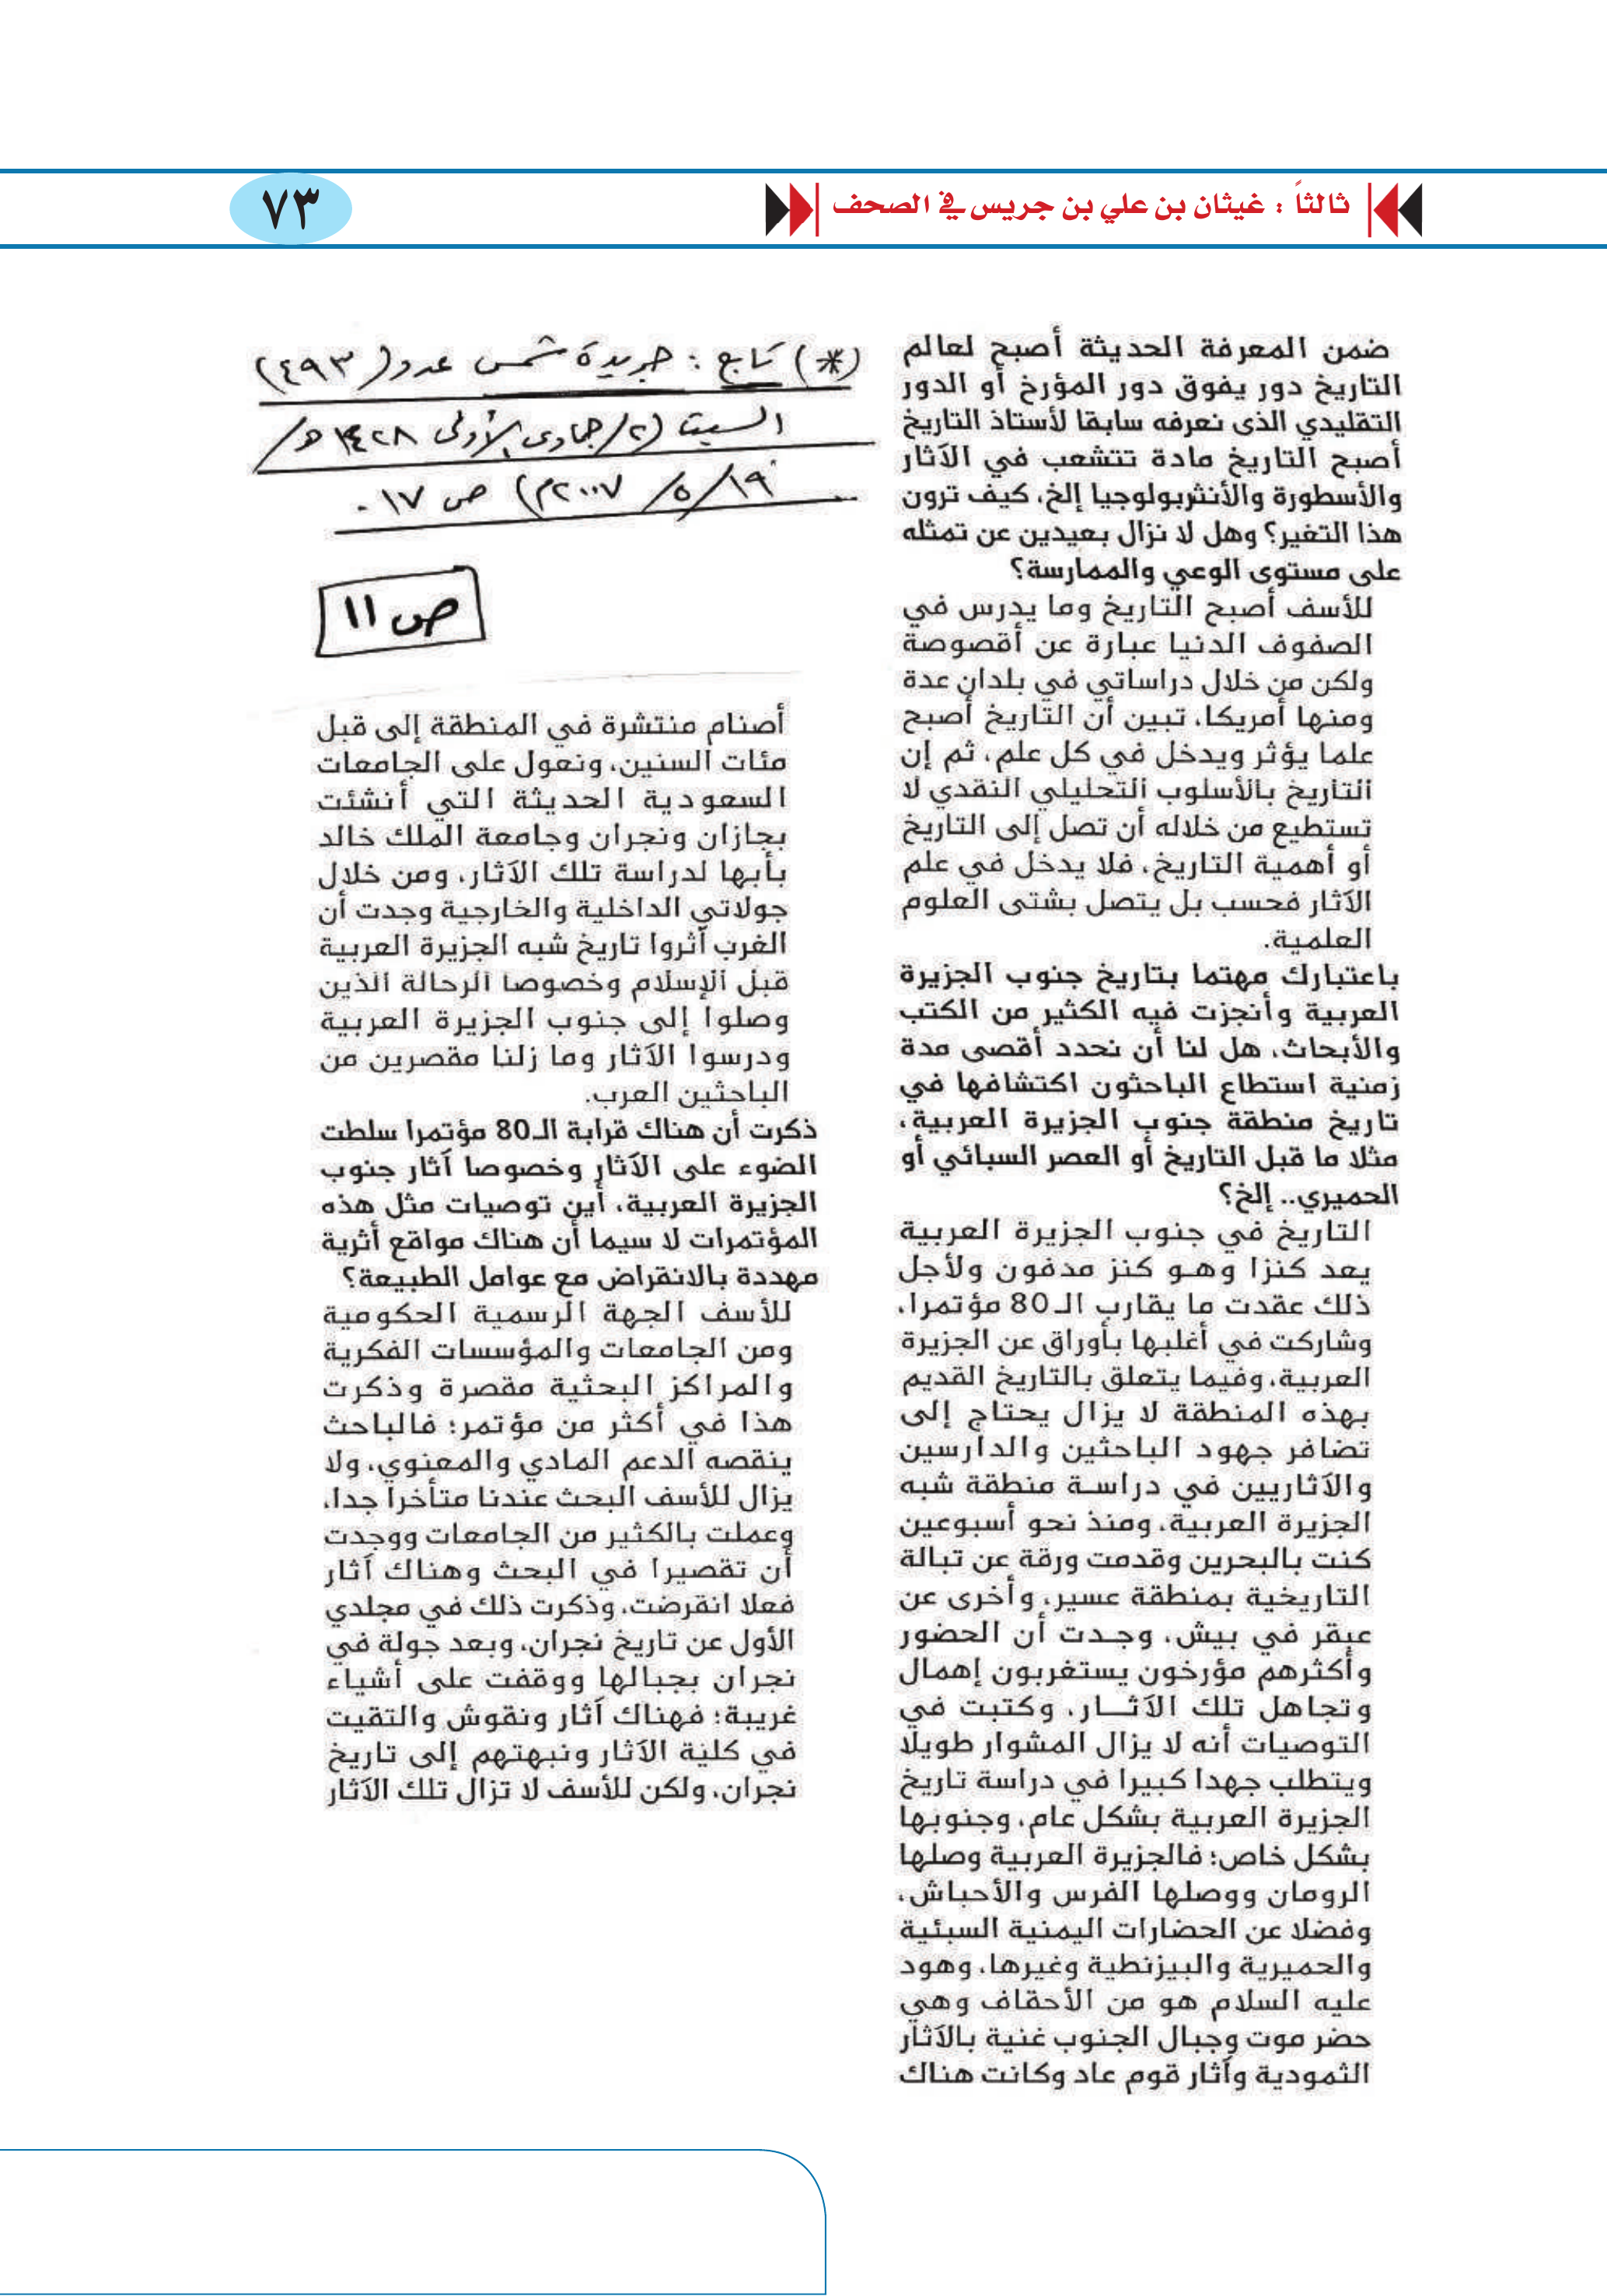 ثالثاً : غيثان بن علي بن جريس في الصحف
٧٣
ضمن المعرفة الحديثة أصبح لعالم
التاريخ دور يفوق دور المؤرخ أو الدور
التقليدي الذى نعرفه سابقا لأستاذ التاريخ
أصبح التاريخ مادة تتشعب في الآثار
والأسطورة والأنثربولوجيا إلخ، كيف ترون
هذا التغير؟ وهل لا نزال بعيدين عن تمثله
على مستوى الوعي والممارسة؟
للأسف أصبح التاريخ وما يدرس في
الصفوف الدنيا عبارة عن أقصوصة
ولكن من خلال دراساتي في بلدان عدة
ومنها أمريكا، تبين أن التاريخ أصبح
علما يؤثر ويدخل في كل علم، ثم إن
التاريخ بالأسلوب التحليلي النقدي لا
تستطيع من خلاله أن تصل إلى التاريخ
أو أهمية التاريخ، فلا يدخل في علم
الآثار فحسب بل يتصل بشتى العلوم
العلمية.
باعتبارك مهتما بتاريخ جنوب الجزيرة
العربية وأنجزت فيه الكثير من الكتب
والأبحاث، هل لنا أن نحدد أقصى مدة
زمنية استطاع الباحثون اكتشافها في
تاريخ منطقة جنوب الجزيرة العربية،
مثلا ما قبل التاريخ أو العصر السبائي أو
الحميري.. إلخ؟
التاريخ في جنوب الجزيرة العربية
يعد كنزا وهو كنز مدفون ولأجل
ذلك عقدت ما يقارب الـ80 مؤتمرا،
وشاركت في أغلبها بأوراق عن الجزيرة
العربية، وفيما يتعلق بالتاريخ القديم
بهذه المنطقة لا يزال يحتاج إلى
تضافر جهود الباحثين والدارسين
والآثاريين في دراسة منطقة شبه
الجزيرة العربية، ومنذ نحو أسبوعين
كنت بالبحرين وقدمت ورقة عن تبالة
التاريخية بمنطقة عسير، وأخرى عن
عبقر في بيش، وجدت أن الحضور
وأكثرهم مؤرخون يستغربون إهمال
وتجاهل تلك الآثـــار، وكتبت في
التوصيات أنه لا يزال المشوار طويلا
ويتطلب جهدا كبيرا في دراسة تاريخ
الجزيرة العربية بشكل عام، وجنوبها
بشكل خاص؛ فالجزيرة العربية وصلها
الرومان ووصلها الفرس والأحباش،
وفضلا عن الحضارات اليمنية السبئية
والحميرية والبيزنطية وغيرها، وهود
عليه السلام هو من الأحقاف وهي
حضر موت وجبال الجنوب غنية بالآثار
الثمودية وآثار قوم عاد وكانت هناك
(*) تابع : جريدة شمس عدد (٤٩٣)
السبت (٢/جمادى الأولى ١٤٢٨هـ/
١٩/ ٥/ ٢٠٠٧م) ص ١٧ .
ص ١١
أصنام منتشرة في المنطقة إلى قبل
مئات السنين، ونعول على الجامعات
السعودية الحديثة التي أنشئت
بجازان ونجران وجامعة الملك خالد
بأبها لدراسة تلك الآثار، ومن خلال
جولاتي الداخلية والخارجية وجدت أن
الغرب أثروا تاريخ شبه الجزيرة العربية
قبل الإسلام وخصوصا الرحالة الذين
وصلوا إلى جنوب الجزيرة العربية
ودرسوا الآثار وما زلنا مقصرين من
الباحثين العرب.
ذكرت أن هناك قرابة الـ80 مؤتمرا سلطت
الضوء على الآثار وخصوصا آثار جنوب
الجزيرة العربية، أين توصيات مثل هذه
المؤتمرات لا سيما أن هناك مواقع أثرية
مهددة بالانقراض مع عوامل الطبيعة؟
للأسف الجهة الرسمية الحكومية
ومن الجامعات والمؤسسات الفكرية
والمراكز البحثية مقصرة وذكرت
هذا في أكثر من مؤتمر؛ فالباحث
ينقصه الدعم المادي والمعنوي، ولا
يزال للأسف البحث عندنا متأخرا جدا،
وعملت بالكثير من الجامعات ووجدت
أن تقصيرا في البحث وهناك آثار
فعلا انقرضت، وذكرت ذلك في مجلدي
الأول عن تاريخ نجران، وبعد جولة في
نجران بجبالها ووقفت على أشياء
غريبة؛ فهناك آثار ونقوش والتقيت
في كلية الآثار ونبهتهم إلى تاريخ
نجران، ولكن للأسف لا تزال تلك الآثار